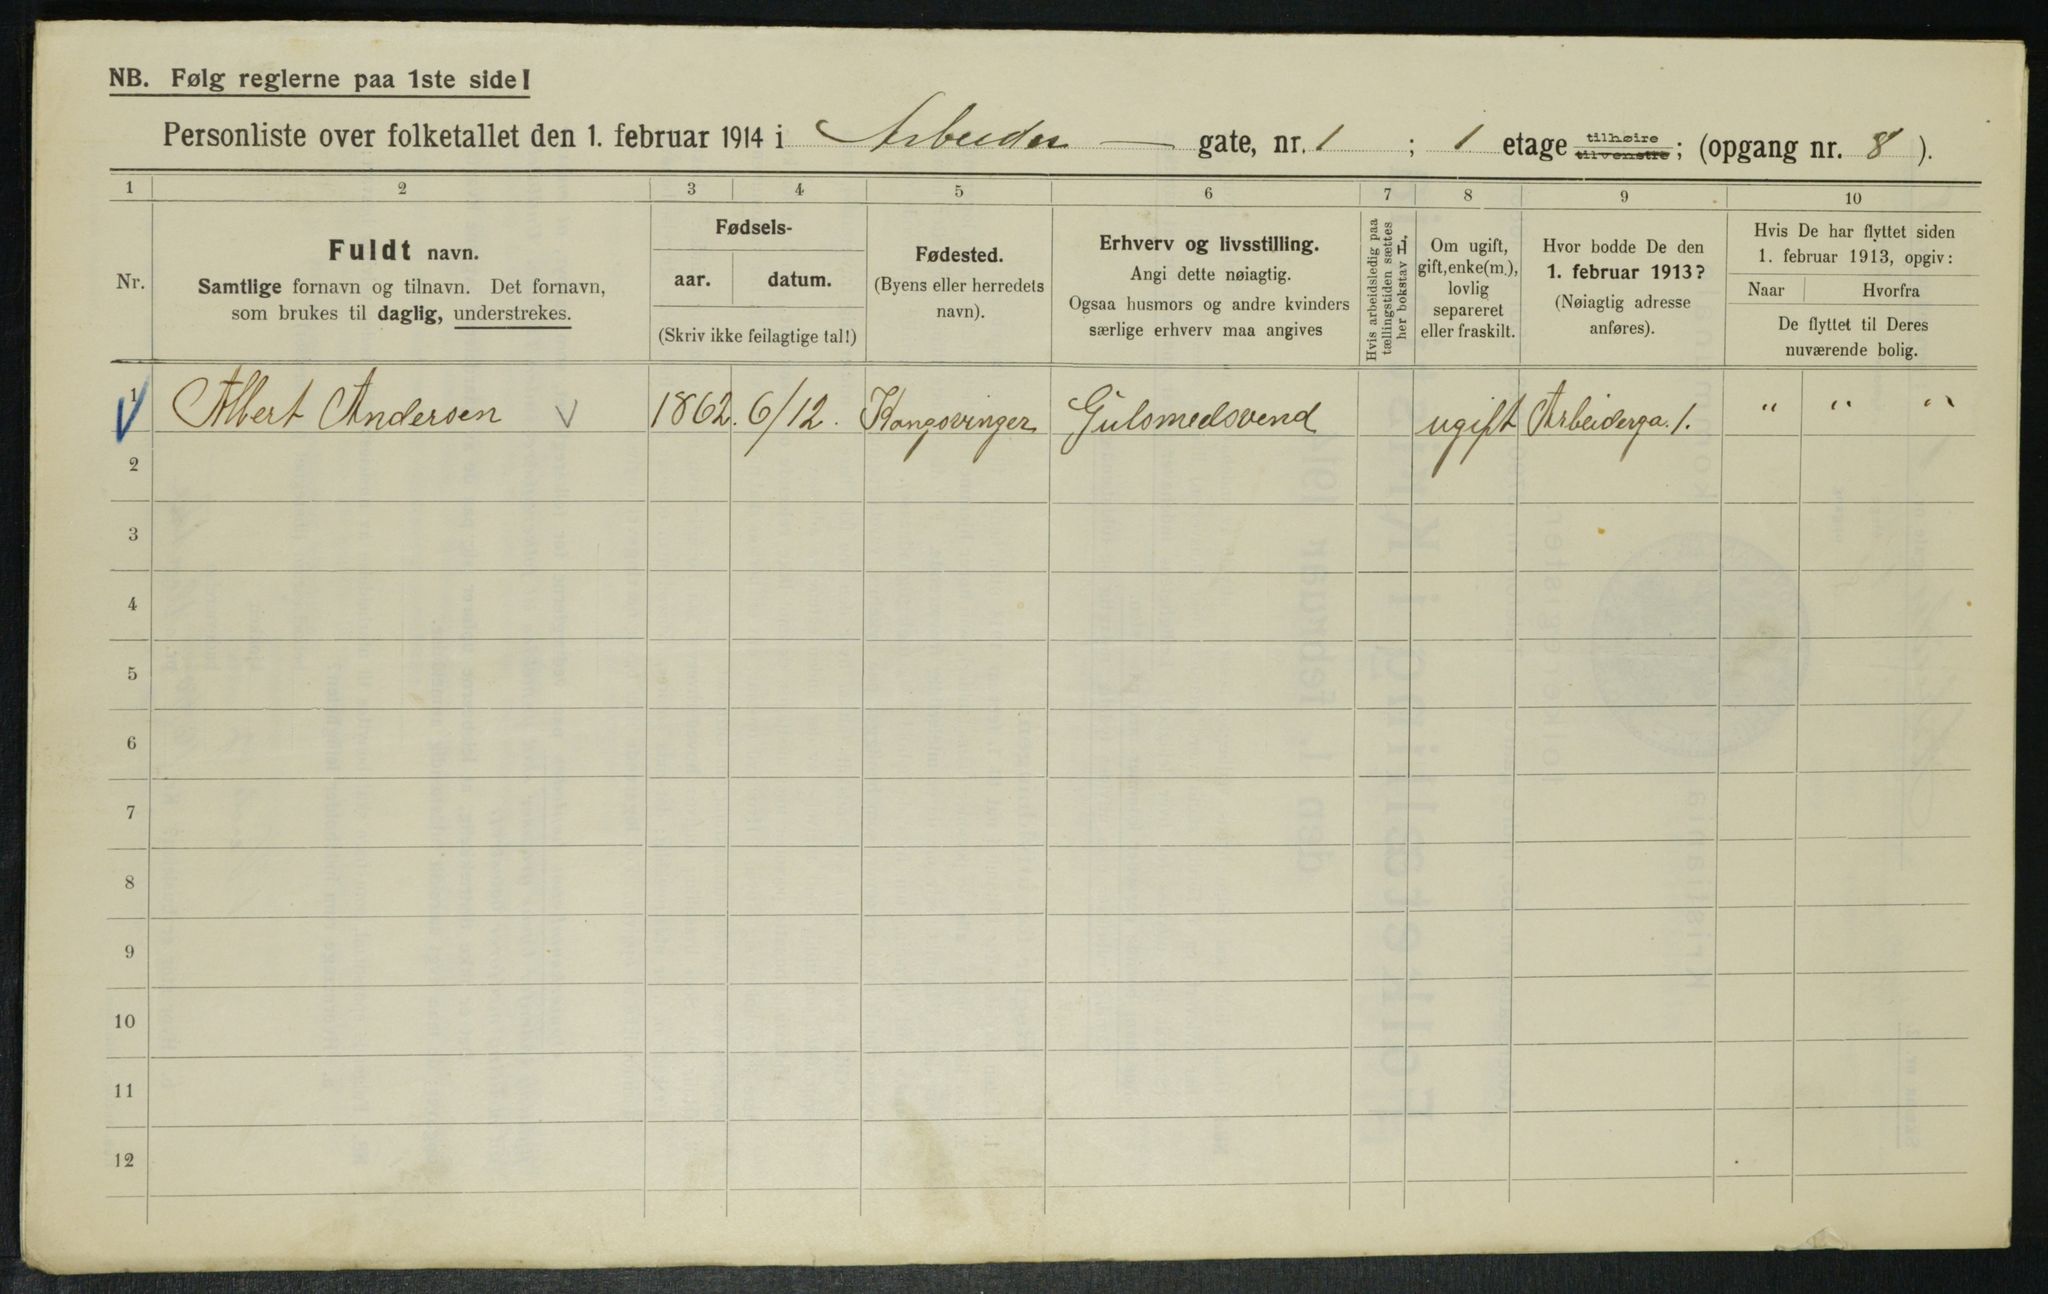 NB. Følg reglerne paa 1ste side!
Personliste over folketallet den 1. februar 1914 i Arbeider — gate, nr. 1 ; 1 etage tilhøire tilvenstre; (opgang nr. 8 ).
1 2 3 4 5 6 7 8 9 10
Nr.
Fuldt navn.
Samtlige fornavn og tilnavn. Det fornavn,
som brukes til daglig, understrekes.
Fødsels-
aar. datum.
(Skriv ikke feilagtige tal!)
Fødested.
(Byens eller herredets
navn).
Erhverv og livsstilling.
Angi dette nøiagtig.
Ogsaa husmors og andre kvinders
særlige erhverv maa angives
Hvis arbeidsledig paa
tællingstiden sættes
her bokstav L.
Om ugift,
gift, enke(m.),
lovlig
separeret
eller fraskilt.
Hvor bodde De den
1. februar 1913?
(Nøiagtig adresse
anføres).
Hvis De har flyttet siden
1. februar 1913, opgiv:
Naar Hvorfra
De flyttet til Deres
nuværende bolig.
1 Albert Andersen 1862. 6/12. Kongsvinger Gulsmedsvend ugift Arbeiderga. 1. " " "
2
3
4
5
6
7
8
9
10
11
12